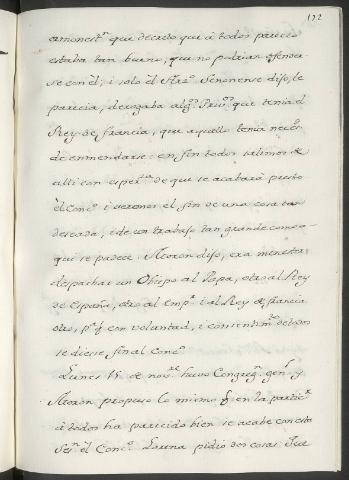 132
amonest.ⁿ que decreto que à todos parecio
estaba tan bueno, que no podrian ofender
se con él; i solo él Arzō. Senonense dijo, le
parecia, derogaba alg.ˢ Priv.ᵒˢ que tenia el
Rey de francia, que aquello tenia neces.
de enmendarse: en fin todos salimos de
alli con esper.ᶻᵃ de que se acabarà presto
él Conc.º i veremos el fin de una cosa tan
deseada, i de con trabajo tan grande como a-
qui se padece. Moron dijo, era menester
despachar un Obispo al Papa, otro al Rey
de España, otro al Emp.ʳ i al Rey de francia
otro, p.ᵃ q̃ con voluntad, i consentim.ᵗᵒ de todos
se diese fin al Conc.º
Lunes 15 de nov.ʳᵉ huvo Congreg.ⁿ gen.ˡ y
Moron propuso lo mismo q̃ en la partic.ʳ
à todos ha parecido bien se acabe con esta
Ses.ⁿ el Conc.º Laura pidio dos cosas. Que